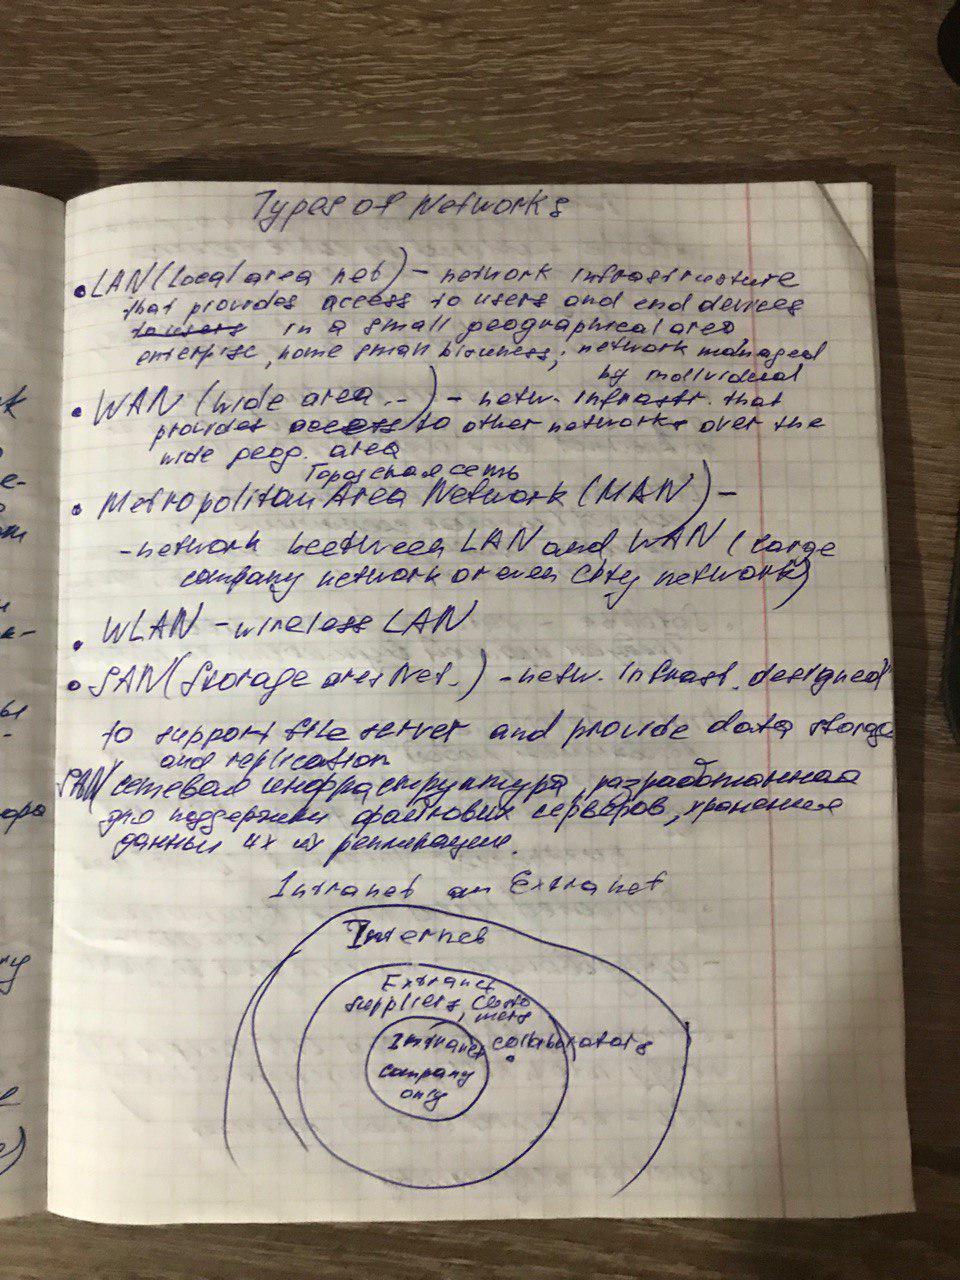 Types of Networks
• LAN (Local area net) – network infrastructure
that provides access to users and end devices
to users in a small geographical area
enterpise, home small bisuness, network managed
by individual
• WAN (wide area ..) – netw. infrastr. that
provides access to other networks over the
wide geog. area
Городская сеть
• Metropolitan Area Network (MAN) –
– network beetween LAN and WAN (large
company network or even city network)
• WLAN – wireless LAN
• SAN (Storage area Net.) – netw. infrast. designed
to support file server and provide data storage
and replication
SAN сетевая инфраструктура, разработанная
для поддержки файловых серверов, хранения
данных их и репликации.
Intranet an Extranet
Internet
Extranet
suppliers, custo
mers
collaborators
Intranet
company
only